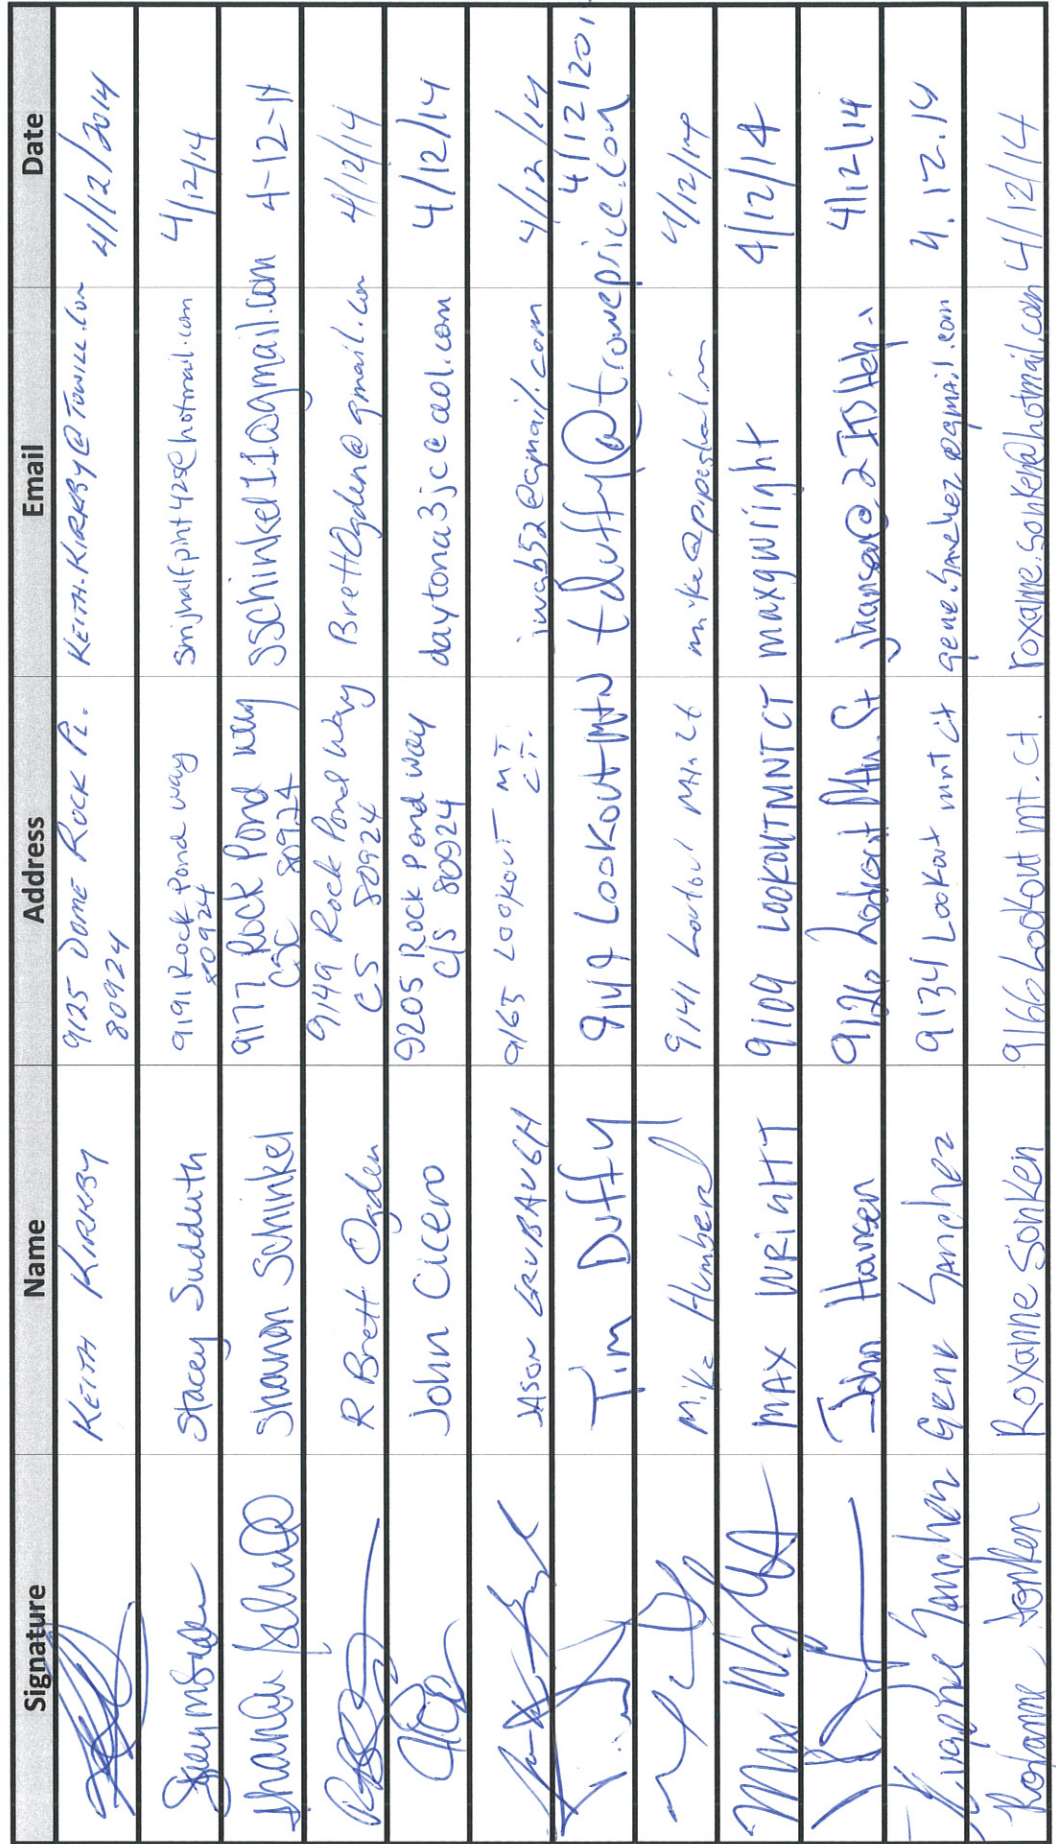 Signature Name Address Email Date
KEITH KIRKBY 9125 DOME ROCK PL. KEITH.KIRKBY@TOWILL.COM 4/12/2014
80924
Stacey Sudduth 9191 Rock Pond way smjhalfpint425@hotmail.com 4/12/14
80924
Shanan Schinkel 9177 Rock Pond Way sschinkel11@gmail.com 4-12-14
CSC 80924
R Brett Ogden 9149 Rock Pond Way BrettOgden@gmail.com 4/12/14
CS 80924
John Cicero 9205 Rock Pond way daytona3jc@aol.com 4/12/14
C/S 80924
JASON GRUBAUGH 9165 LOOKOUT MT jwgb52@gmail.com 4/12/14
CT.
Tim Duffy 9149 LOOKOUT MTN tduffy@troweprice.com 4/12/201
Mike Humberd 9141 Lookout Mtn Ct 4/12/14
MAX WRIGHT 9109 LOOKOUT MNT CT maxgwright 4/12/14
John Hansen 9126 Lookout Mtn. Ct 4/12/14
Eugene Sanchez Gene Sanchez 9134 Lookout mnt ct gene.sanchez@gmail.com 4.12.14
Roxanne Sonken Roxanne Sonken 9166 Lookout mt. ct. roxanne.sonken@hotmail.com 4/12/14